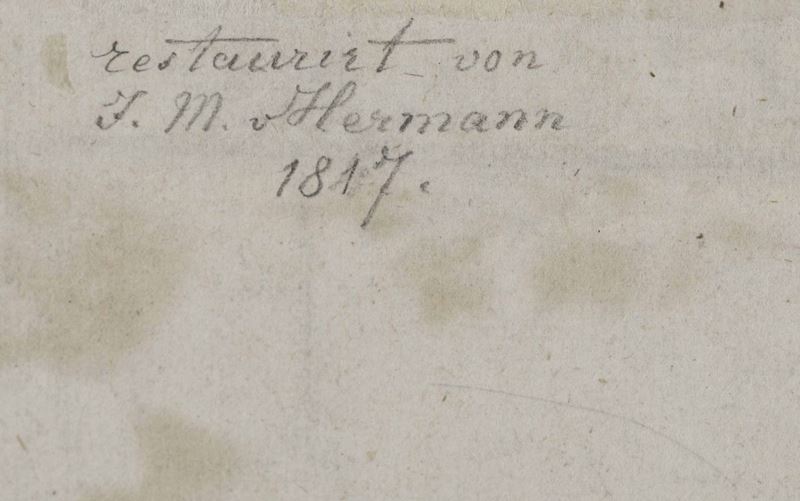 restaurirt von
J. M. v Hermann
1817.